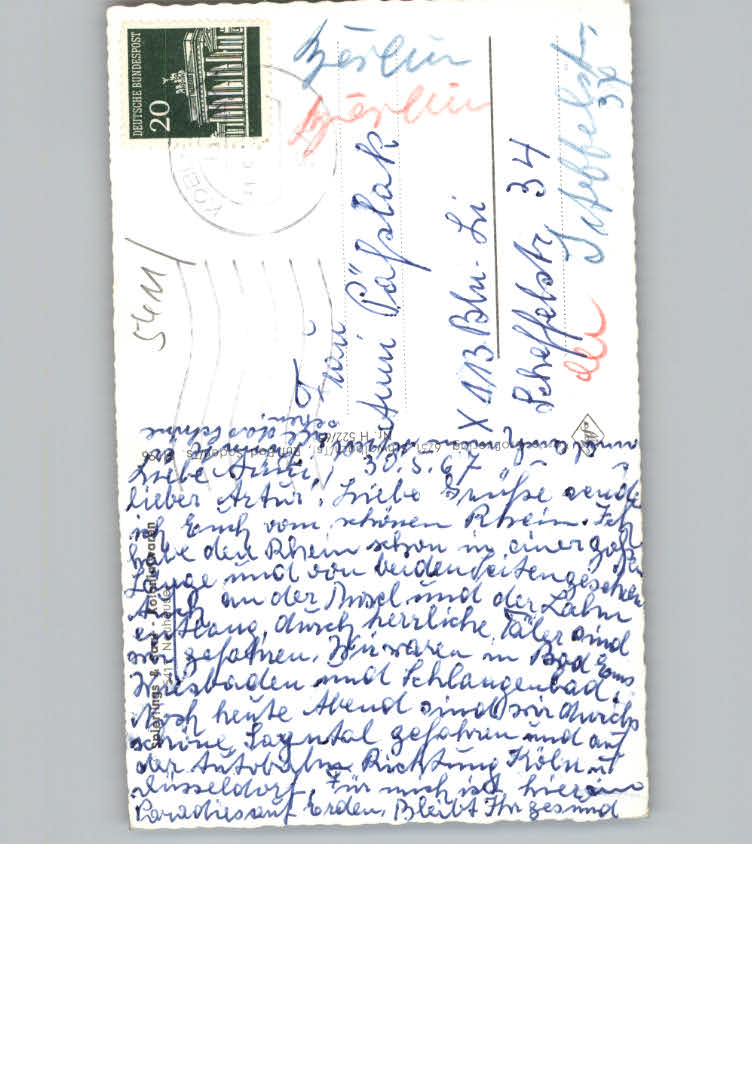 DEUTSCHE BUNDESPOST
20
Berlin
Berlin
5411/
Frau
Anni Päßlak
X 113 Bln-Li
Scheffelstr. 34
Scheffelstr.
34
Liebe Anni, 30.5.67
lieber Artur! Liebe Grüße sende
ich Euch vom schönen Rhein. Ich
habe den Rhein schon in einer
Länge und von beiden Seiten gesehen
Auch an der Mosel und der Lahn
entlang, durch herrliche Täler sind
wir gefahren. Wir waren in Bad Ems
Wiesbaden und Schlangenbad.
Noch heute Abend sind wir durchs
schöne Sayntal gefahren und auf
der Autobahn Richtung Köln u
Düsseldorf. Für mich ist hier ein
Paradies auf Erden. Bleibt Ihr gesund
all das Schöne
sehen.